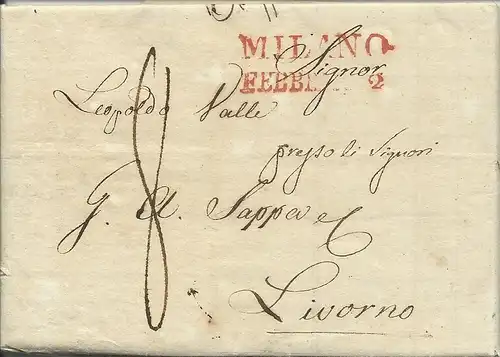 MILANO
FEBBR. 2
Signor
Leopoldo Valle
presso li Signori
G. A. Sappa e C
Livorno
8